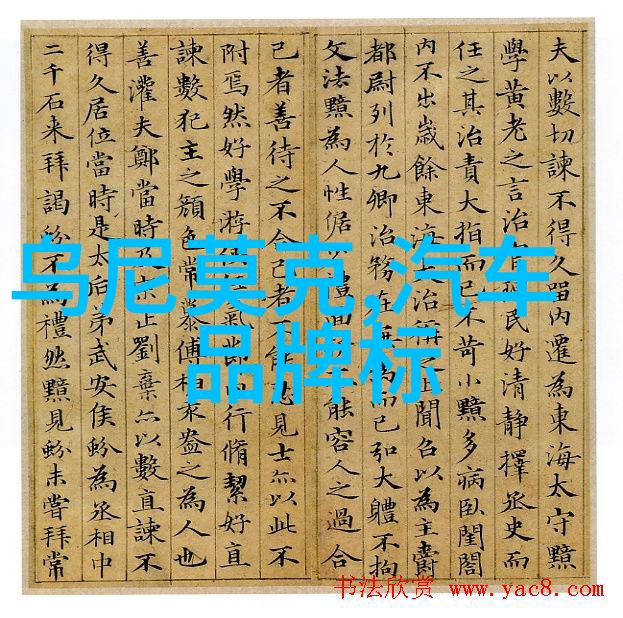 夫以數切諫不得久畱內遷為東海太守黯
學黃老之言治民好清靜擇丞史而
任之其治責大指而已不苛小黯多病臥閨閤
內不出歲餘東海大治稱之上聞召以為主爵
都尉列於九卿治務在無為而已弘大體不拘
文法黯為人性倨禮面能容人之過合
己者善待之不合己者不能忍見士亦以此不
附焉然好學游氣節內行脩絜好直
諫數犯主之顏色常慕傅柏袁盎之為人也
善灌夫鄭當時及宗正劉棄亦以數直諫不
得久居位當時是太后弟武安侯蚡為丞相中
二千石来拜謁蚡不為禮然黯見蚡未嘗拜常
乌尼莫克,汽车
品牌标
书法欣赏 www.yac8.com